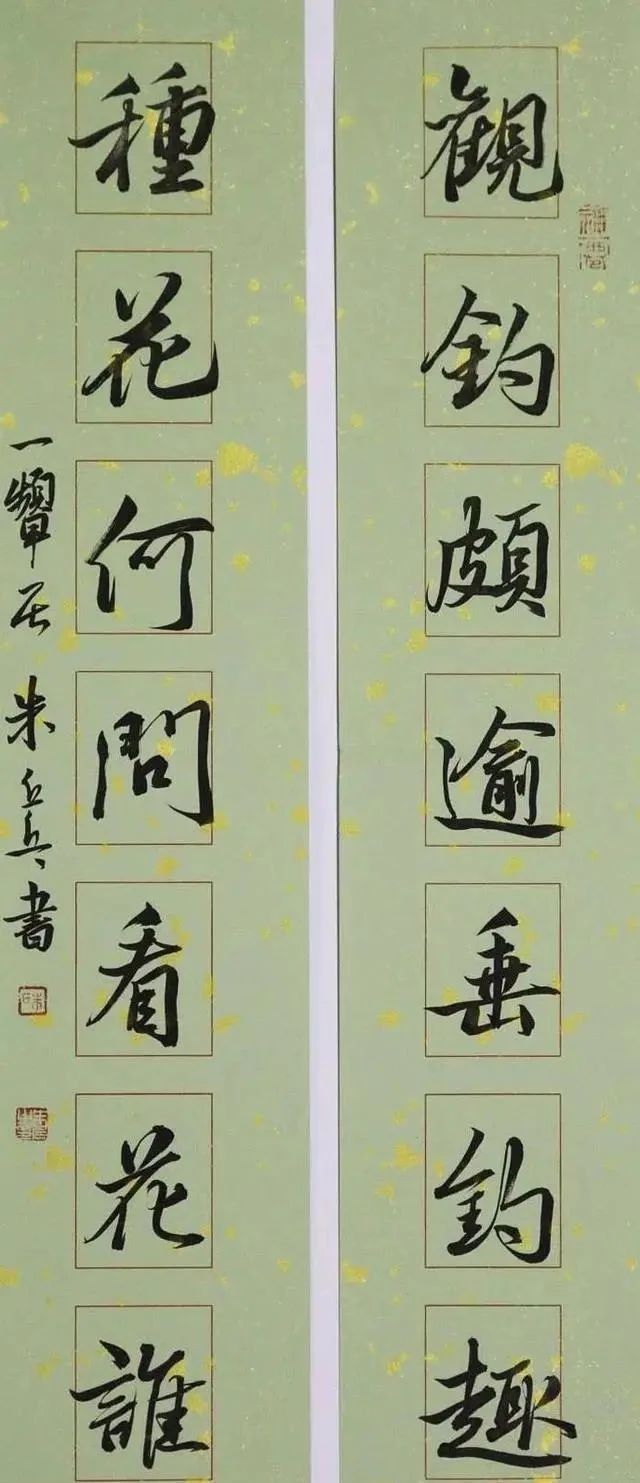 觀釣頗逾垂釣趣
種花何問看花誰
一顰居 朱丘兵書